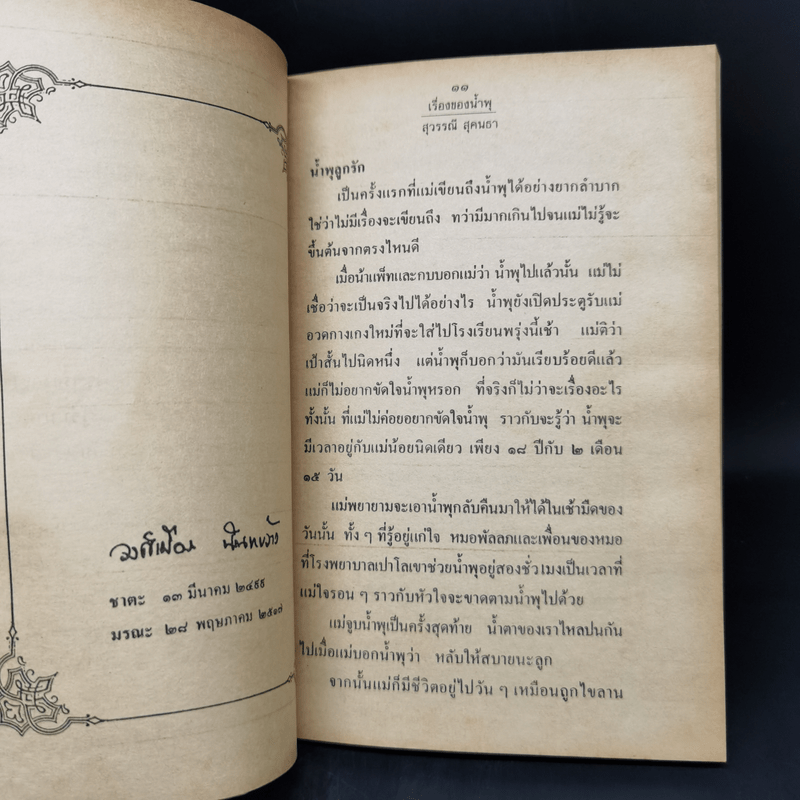 วงศ์เมือง นันทขว้าง
ชาตะ ๑๓ มีนาคม ๒๔๙๙
มรณะ ๒๘ พฤษภาคม ๒๕๑๗
๑๑
เรื่องของน้ำพุ
สุวรรณี สุคนธา
น้ำพุลูกรัก
เป็นครั้งแรกที่แม่เขียนถึงน้ำพุได้อย่างยากลำบาก
ใช่ว่าไม่มีเรื่องจะเขียนถึง ทว่ามีมากเกินไปจนแม่ไม่รู้จะ
ขึ้นต้นจากตรงไหนดี
เมื่อน้าแพ็ทและกบบอกแม่ว่า น้ำพุไปแล้วนั้น แม่ไม่
เชื่อว่าจะเป็นจริงไปได้อย่างไร น้ำพุยังเปิดประตูรับแม่
อวดกางเกงใหม่ที่จะใส่ไปโรงเรียนพรุ่งนี้เช้า แม่ติว่า
เป้าสั้นไปนิดหนึ่ง แต่น้ำพุก็บอกว่ามันเรียบร้อยดีแล้ว
แม่ก็ไม่อยากขัดใจน้ำพุหรอก ที่จริงก็ไม่ว่าจะเรื่องอะไร
ทั้งนั้น ที่แม่ไม่ค่อยอยากขัดใจน้ำพุ ราวกับจะรู้ว่า น้ำพุจะ
มีเวลาอยู่กับแม่น้อยนิดเดียว เพียง ๑๘ ปีกับ ๒ เดือน
๑๕ วัน
แม่พยายามจะเอาน้ำพุกลับคืนมาให้ได้ในเช้ามืดของ
วันนั้น ทั้ง ๆ ที่รู้อยู่แก่ใจ หมอพัลลภและเพื่อนของหมอ
ที่โรงพยาบาลเปาโลเขาช่วยน้ำพุอยู่สองชั่วเมงเป็นเวลาที่
แม่ใจรอน ๆ ราวกับหัวใจจะขาดตามน้ำพุไปด้วย
แม่จูบน้ำพุเป็นครั้งสุดท้าย น้ำตาของเราไหลปนกัน
ไปเมื่อแม่บอกน้ำพุว่า หลับให้สบายนะลูก
จากนั้นแม่ก็มีชีวิตอยู่ไปวัน ๆ เหมือนถูกไขลาน